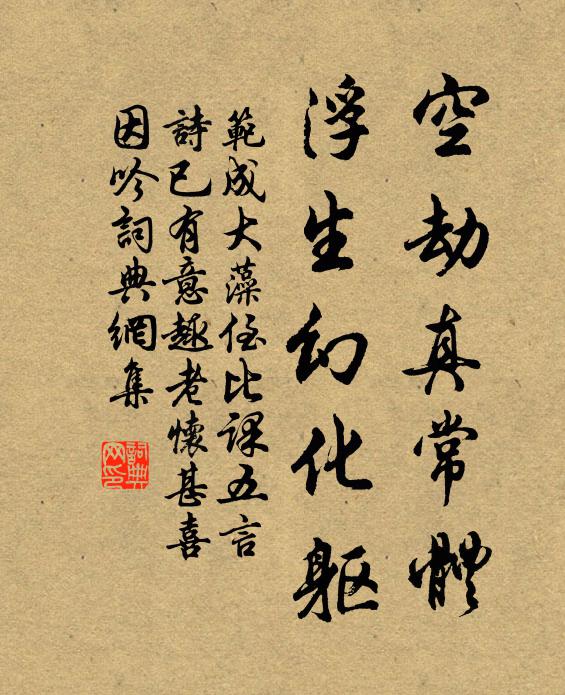 空劫真常體
浮生幻化軀
範成大藻侄比課五言
詩已有意趣老懷甚喜
因吟詞典網集
詞典
网印